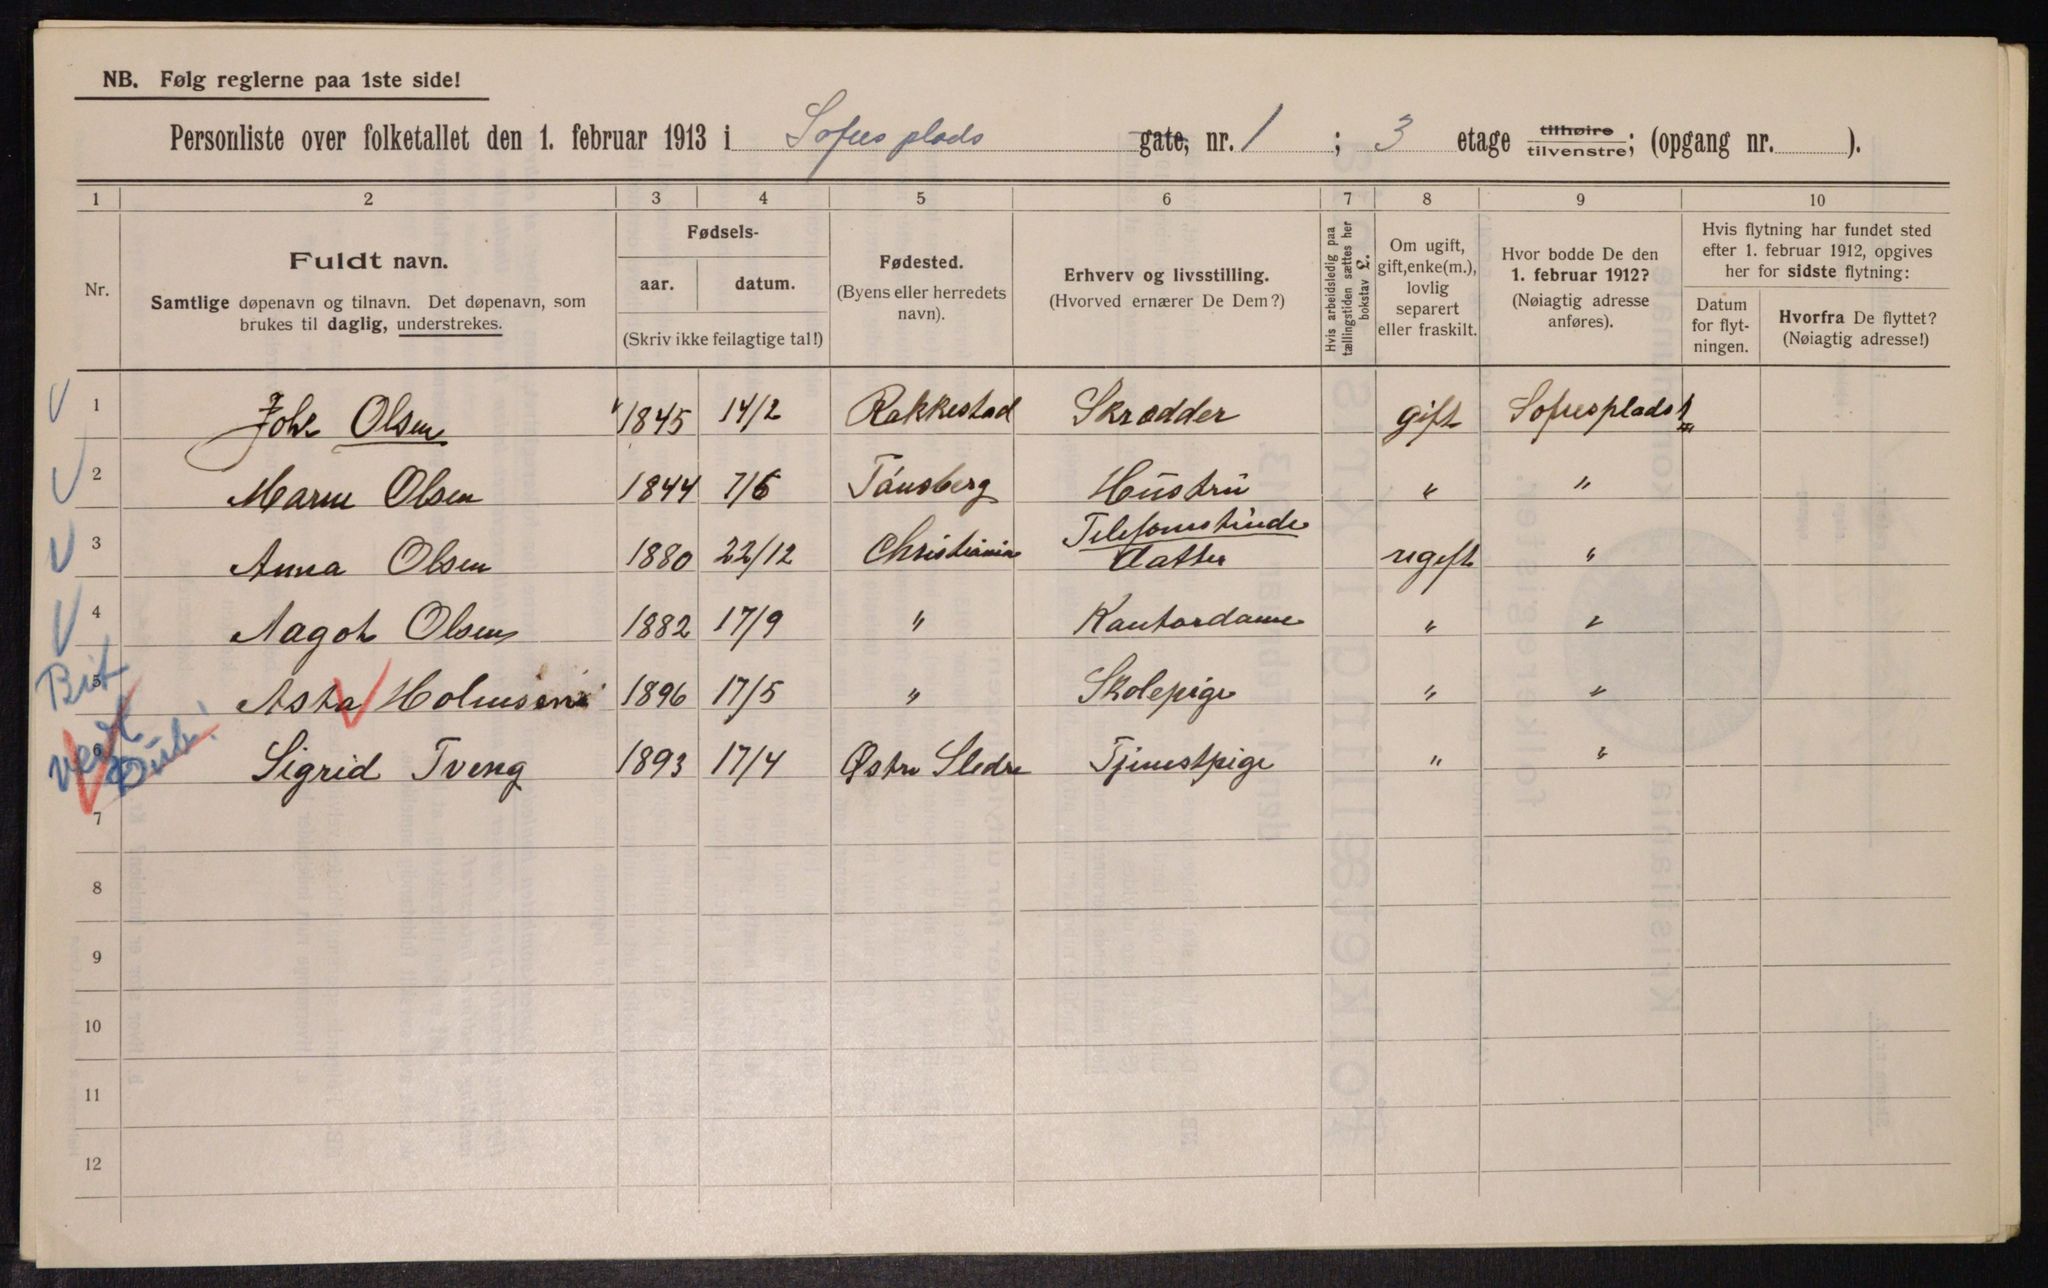 NB. Følg reglerne paa 1ste side!
Personliste over folketallet den 1. februar 1913 i Sofies plads gate, nr. 1 ; 3 etage tilhøire tilvenstre; (opgang nr. ).
1 2 3 4 5 6 7 8 9 10
Nr.
Fuldt navn.
Samtlige døpenavn og tilnavn. Det døpenavn, som
brukes til daglig, understrekes.
Fødsels-
aar. datum.
(Skriv ikke feilagtige tal!)
Fødested.
(Byens eller herredets
navn).
Erhverv og livsstilling.
(Hvorved ernærer De Dem?)
Hvis arbeidsledig paa
tællingstiden sættes her
bokstav £.
Om ugift,
gift, enke(m.),
lovlig
separert
eller fraskilt.
Hvor bodde De den
1. februar 1912?
(Nøiagtig adresse
anføres).
Hvis flytning har fundet sted
efter 1. februar 1912, opgives
her for sidste flytning:
Datum
for flyt-
ningen.
Hvorfra De flyttet?
(Nøiagtig adresse!)
1 Joh. Olsen 1845 14/2 Rakkestad Skrædder gift Sofiesplads 1
2 Marie Olsen 1844 7/6 Tønsberg Hustru " "
3 Anna Olsen 1880 22/12 Christiania Telefonistinde Datter ugift "
4 Aagot Olsen 1882 17/9 " Kontordame " "
5 Asta Holmsen 1896 17/5 " Skolepige " "
6 Sigrid Tveng 1893 17/4 Østre Slidre Tjenestpige " "
7
8
9
10
11
12